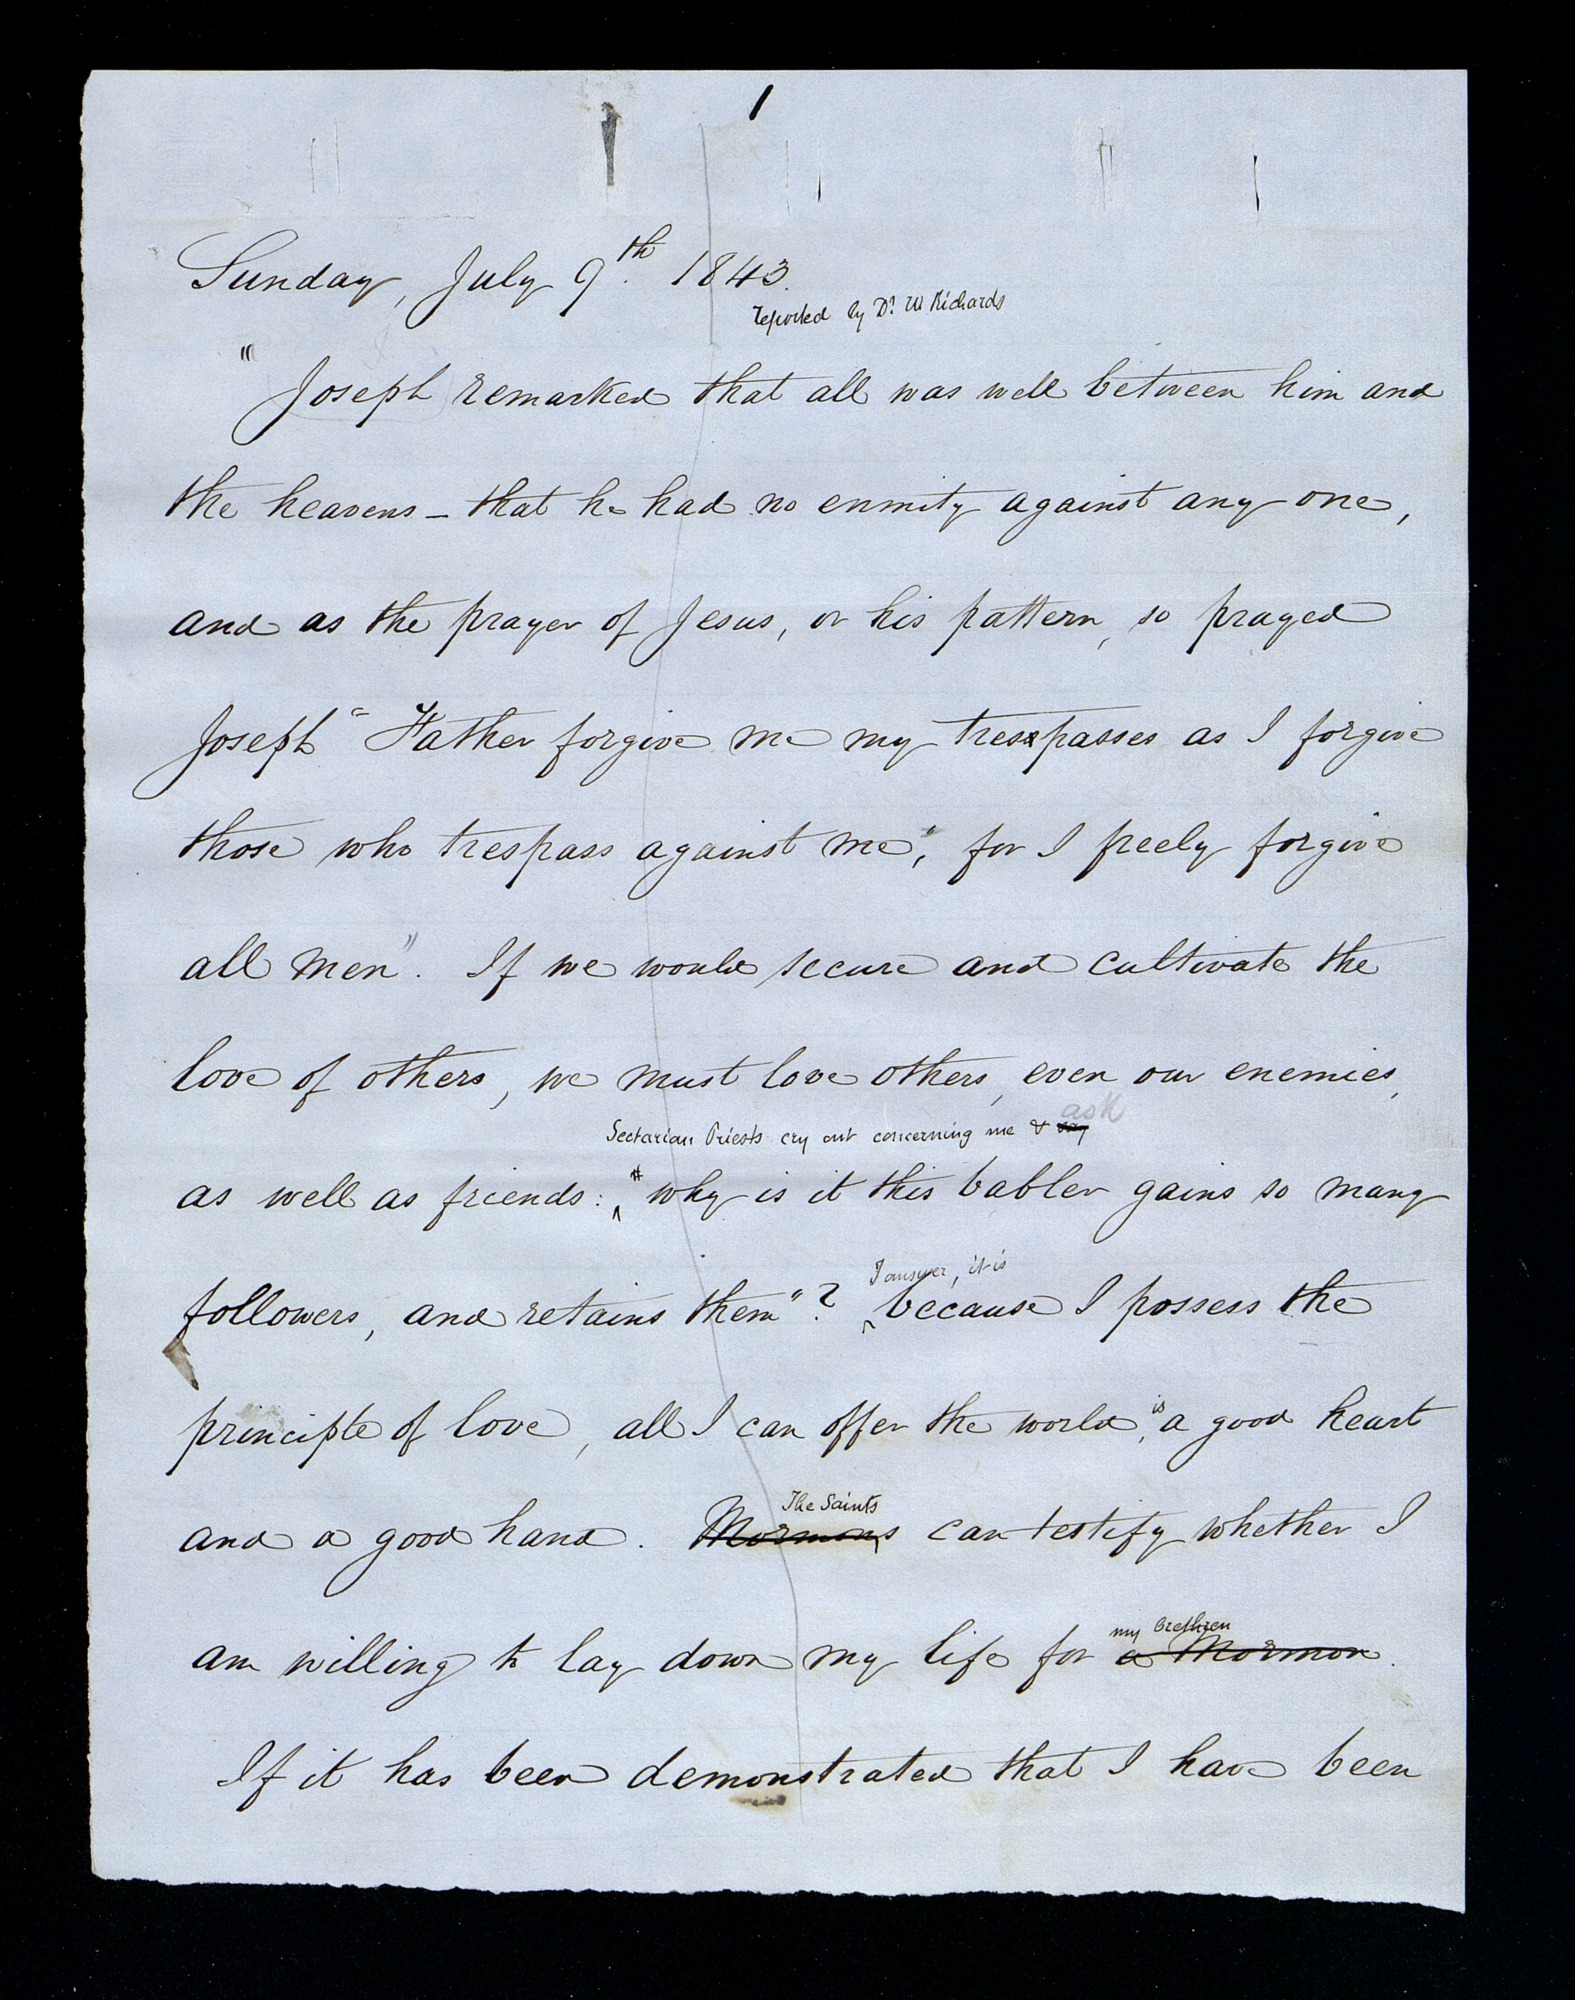 1
Sunday, July 9th. 1843.
reported by Dr. W Richards
" Joseph remarked that all was well between him and
the heavens - that he had no enmity against any one,
and as the prayer of Jesus, or his pattern, so prayed
Joseph "Father forgive me my tresspasses as I forgive
those who trespass against me", for I freely forgive
all men". If we would secure and cultivate the
love of others, we must love others, even our enemies,
Sectarian Priests cry out concerning me & say ask
as well as friends: ^ "why is it this babler gains so many
followers, and retains them"? ^ because I possess the
I answer, it is
principle of love, all I can offer the world, is a good heart
and a good hand. Mormons can testify whether I
The Saints
am willing to lay down my life for a Mormon.
my brethren
If it has been demonstrated that I have been